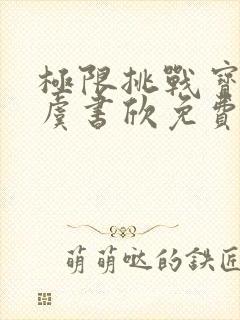 極限挑戰寶
虞書欣免費
萌萌哒的鉄匠